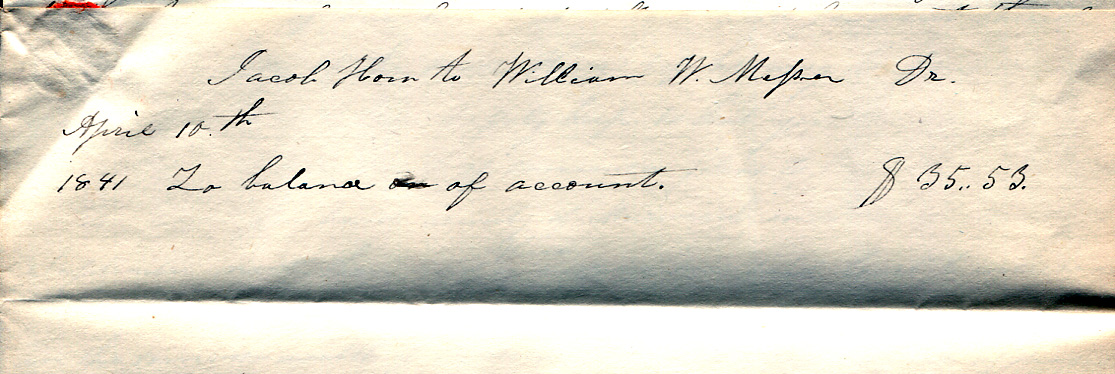 Jacob Horn to William W. Messer Dr.
April 10.th
1841 To balance on of account. $ 35.. 53.